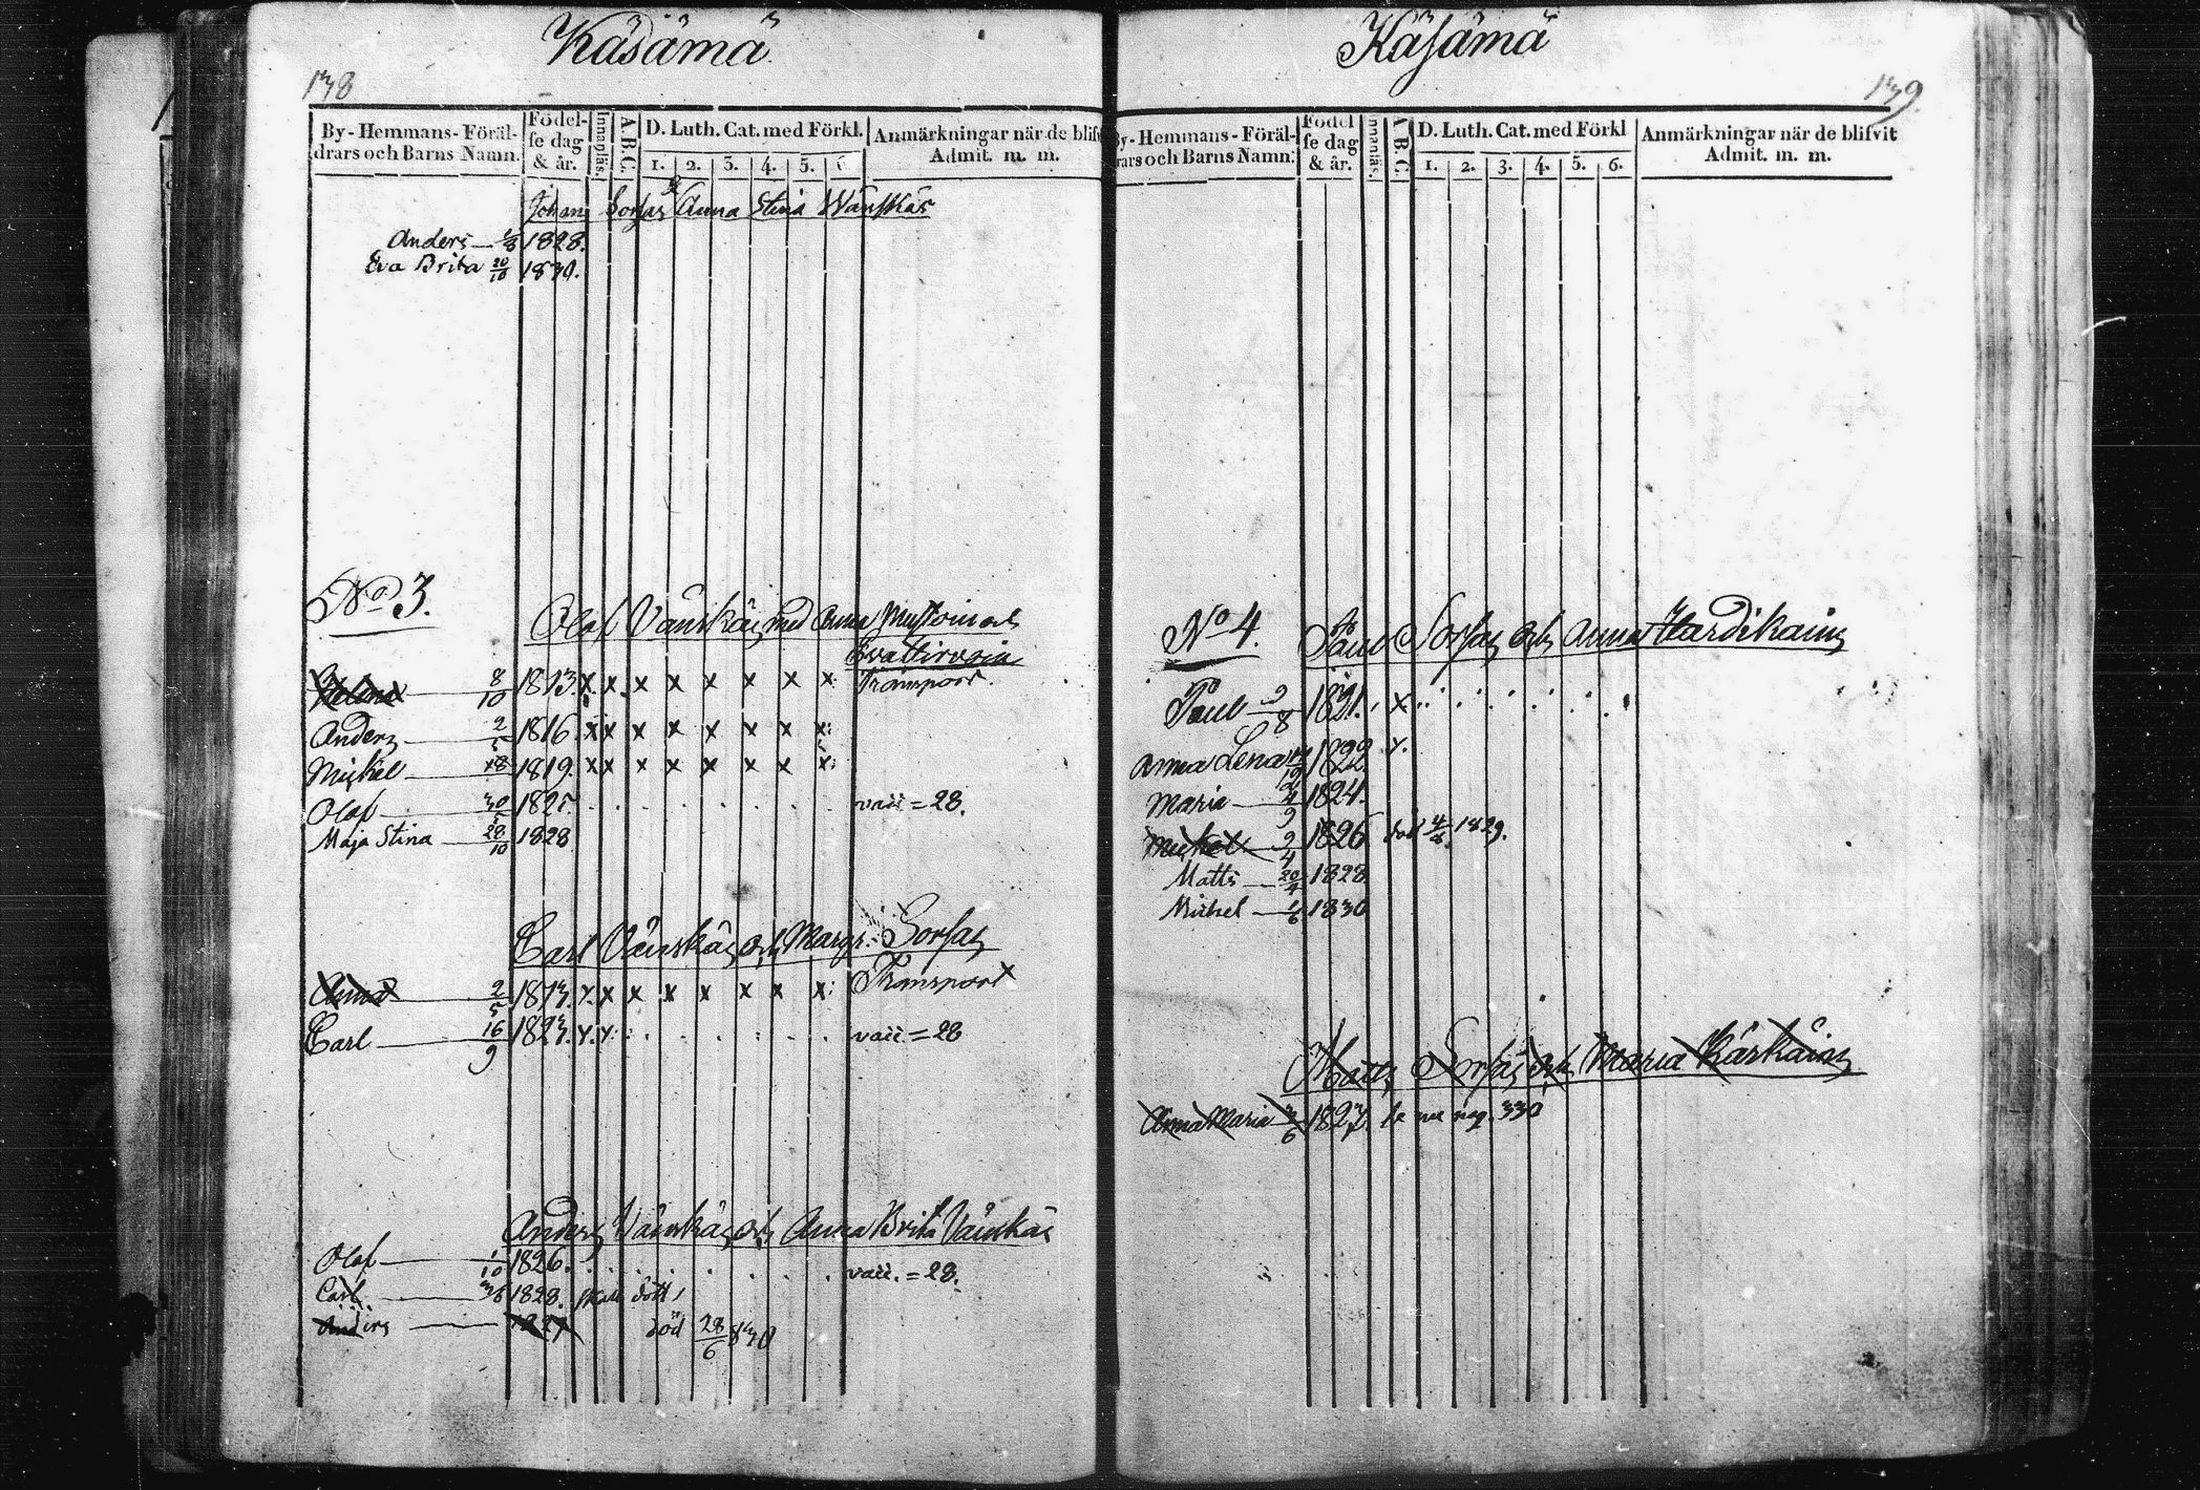 Käsämä
138
By-Hemmans-Föräl-
drars och Barns Namn.
Födel-
se dag
& år.
Innenläs.
A.B.C.
D. Luth. Cat. med Förkl.
1. 2. 3. 4. 5. 6
Anmärkningar när de blifv
Admit. m. m.
Johan Sorsas & Anna Stina Wänskäs
Anders — 1/8 1828.
Eva Brita 20/10 1830.
No 3.
Olof Vänskäs med Anna
Eva Hirvoin
8/10 1813. x x x x x x x x Transport.
Anders — 2/5 1816. x x x x x x x x
Michel — 18 1819. x x x x x x x x
Olof — 30/5 1825 vacc = 28.
Maja Stina — 28/10 1828
Carl Vänskäs och Margr. Sorsas
Anna — 2/5 1813. x x x x x x x x Transport
Carl — 16/9 1823. x x vacc. = 28
Anders Vänskäs och Anna Brita Vänskäs
Olof — 1/10 1826. vacc. = 28.
Carl — 1828. död
Anders — död 28/6 830
Käsämä
139
By-Hemmans-Föräl-
rars och Barns Namn.
Födel
se dag
& år.
nnanläs.
A.B.C.
D. Luth. Cat. med Förkl
1. 2. 3. 4. 5. 6.
Anmärkningar när de blifvit
Admit. m. m.
No 4. Paul Sorsas och Anna Hardikain
Paul — 2/8 1821. x
Anna Lena 1822 x.
Maria — 4/9 1824.
Michel — 2/4 1826 död 1829.
Matts — 20/4 1828
Michel — 1/6 1830
Matts Sorsas och Maria Kärkäin
Anna Maria 3/6 1827. pag. 330